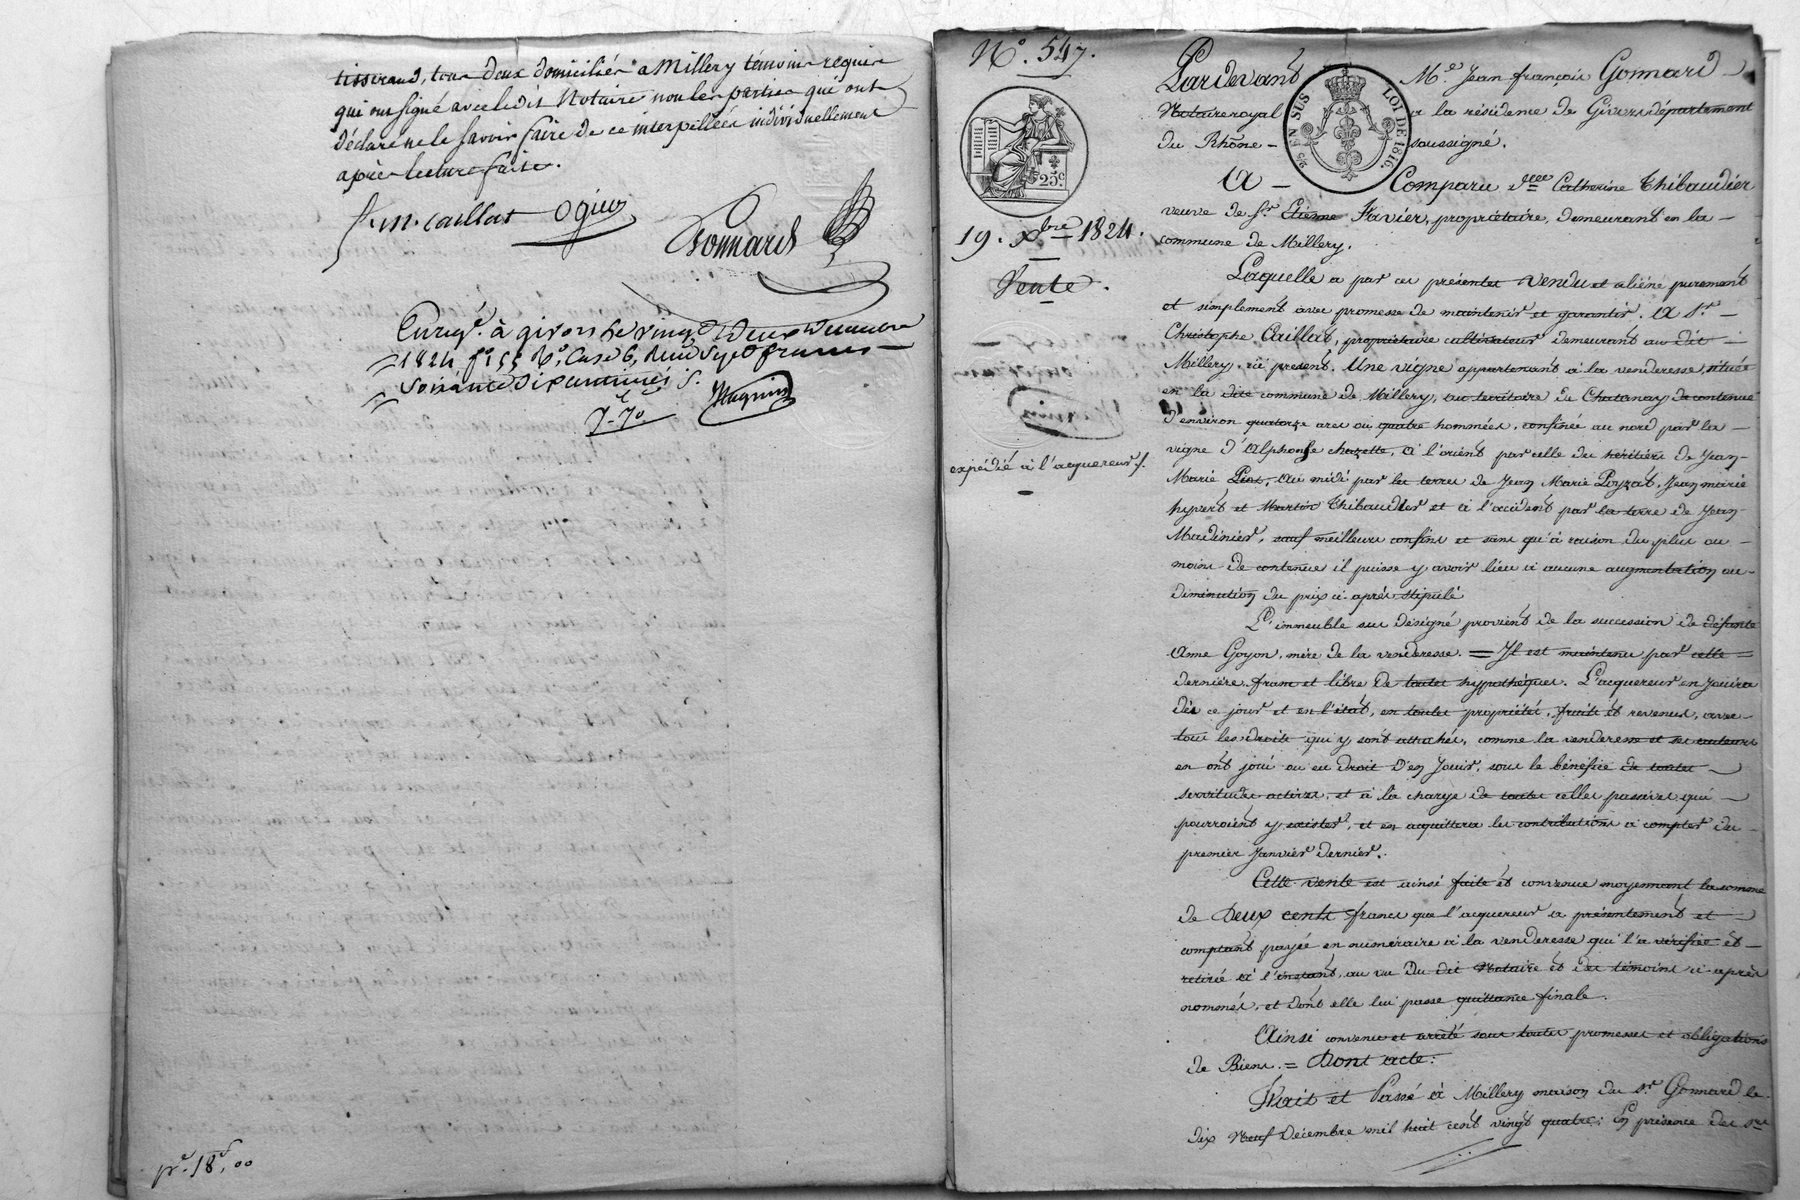 tisserand, tous deux domiciliés a Millery témoins requis
qui ont signé avec ledit Notaire non les parties qui ont
déclaré ne le savoir faire de ce interpellées individuellement
après lecture faite.
Caillat Oguis
Gonnard
Enregé. à givors le vingt deux Decembre
1824 fo 55 Vo, Case 6, Reçu Sept francs
soixante dix centimes
7-70
pr. 18f,00
No. 547.
25c
19. Xbre 1824.
Vente.
expédié à l'acquereur
25 EN SUS
LOI DE 1816.
Pardevant Me. Jean françois Gonnard
Notaire royal a la résidence de Givors département
du Rhône - soussigné.
A - Comparu Catherine Thibaudier
veuve de Sr. Etienne Favier, propriétaire, demeurant en la
commune de Millery.
Laquelle a par ces présentes vendu et aliéné purement
et simplement avec promesse de maintenir et garantir. A Sr.
Christophe Caillat, propriétaire cultivateur demeurant au dit
Millery, ici présent. Une vigne appartenant à la venderesse, située
en la dite commune de Millery, au territoire de Chatanay de contenue
d'environ quatorze ares ou quatre hommées, confinée au nord par la
vigne d'Alphonse chazette, à l'orient par celle des héritiers de Jean
Marie Pins, au midi par les terres de Jean Marie Poyzat, Jean marie
hyvert et Martin Thibaudier et à l'occident par la terre de Jean
Madinier, sauf meilleurs confins et sans qu'à raison du plus ou
moins de contenue il puisse y avoir lieu à aucune augmentation ou
diminution du prix ci-après stipulé
L'immeuble sus désigné provient de la succession de défunte
Anne Goyon, mère de la venderesse. = Il est maintenu par cette
dernière franc et libre de toutes hypothéques. L'acquereur en Jouira
dès ce jour et en l'état, en toutes propriétés, fruits et revenus, avec
tous les droits qui y sont attachés, comme la venderesse et ses auteurs
en ont joui ou eu droit d'en Jouir, sous le bénéfice de toutes
servitudes actives, et à la charge de toutes celles passives qui
pourroient y exister, et en acquittera les contributions à compter du
premier Janvier dernier.
Cette vente est ainsi faite et convenue moyennant la somme
de Deux cents francs que l'acquereur a présentement et
comptant payée en numéraire à la venderesse qui l'a vérifiée et
retirée à l'instant, au vu du dit Notaire et des témoins ci-après
nommés, et dont elle lui passe quittance finale.
Ainsi convenu et arrêté sous toutes promesses et obligations
de Biens. = Dont acte.
Fait et Passé à Millery maison du Sr. Gonnard le
dix Neuf Décembre mil huit cent vingt quatre; En présence des Srs